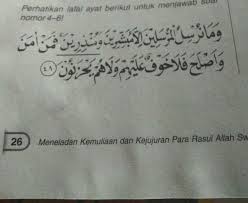 Perhatikan lafal ayat berikut untuk menjawab soal
nomor 4-6!
وَمَا نُرْسِلُ الْمُرْسَلِيْنَ اِلَّا مُبَشِّرِيْنَ وَمُنْذِرِيْنَۚ فَمَنْ اٰمَنَ
وَاَصْلَحَ فَلَا خَوْفٌ عَلَيْهِمْ وَلَا هُمْ يَحْزَنُوْنَ (٤٨)
26 Meneladan Kemuliaan dan Kejujuran Para Rasul Allah Sw